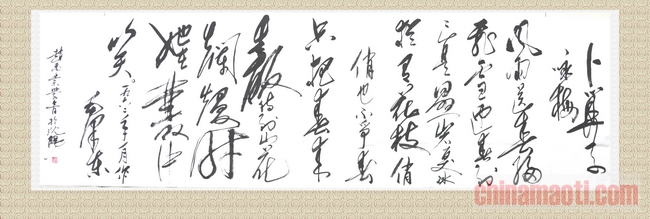 卜算子
咏梅
风雨送春归
飞雪迎春到
已是悬崖百丈冰
犹有花枝俏
俏也不争春
只把春来
报待到山花
烂熳时
她在丛中
笑 一九六一年十二月作
毛泽东
chinamaoti.com